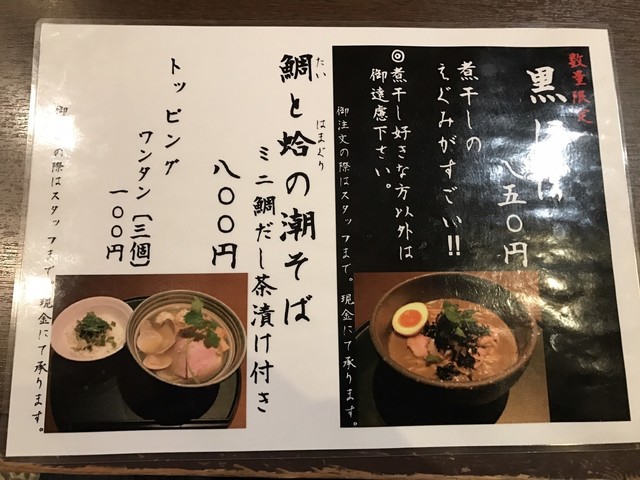 数量限定
黒
八五〇円
煮干しの
えぐみがすごい!!
◎煮干し好きな方以外は
御遠慮下さい。
御注文の際はスタッフまで。現金にて承ります。
たい
はまぐり
鯛と蛤の潮そば
ミニ鯛だし茶漬け付き
八〇〇円
トッピング
ワンタン〔三個〕
一〇〇円
御 の際はスタッフまで。現金にて承ります。